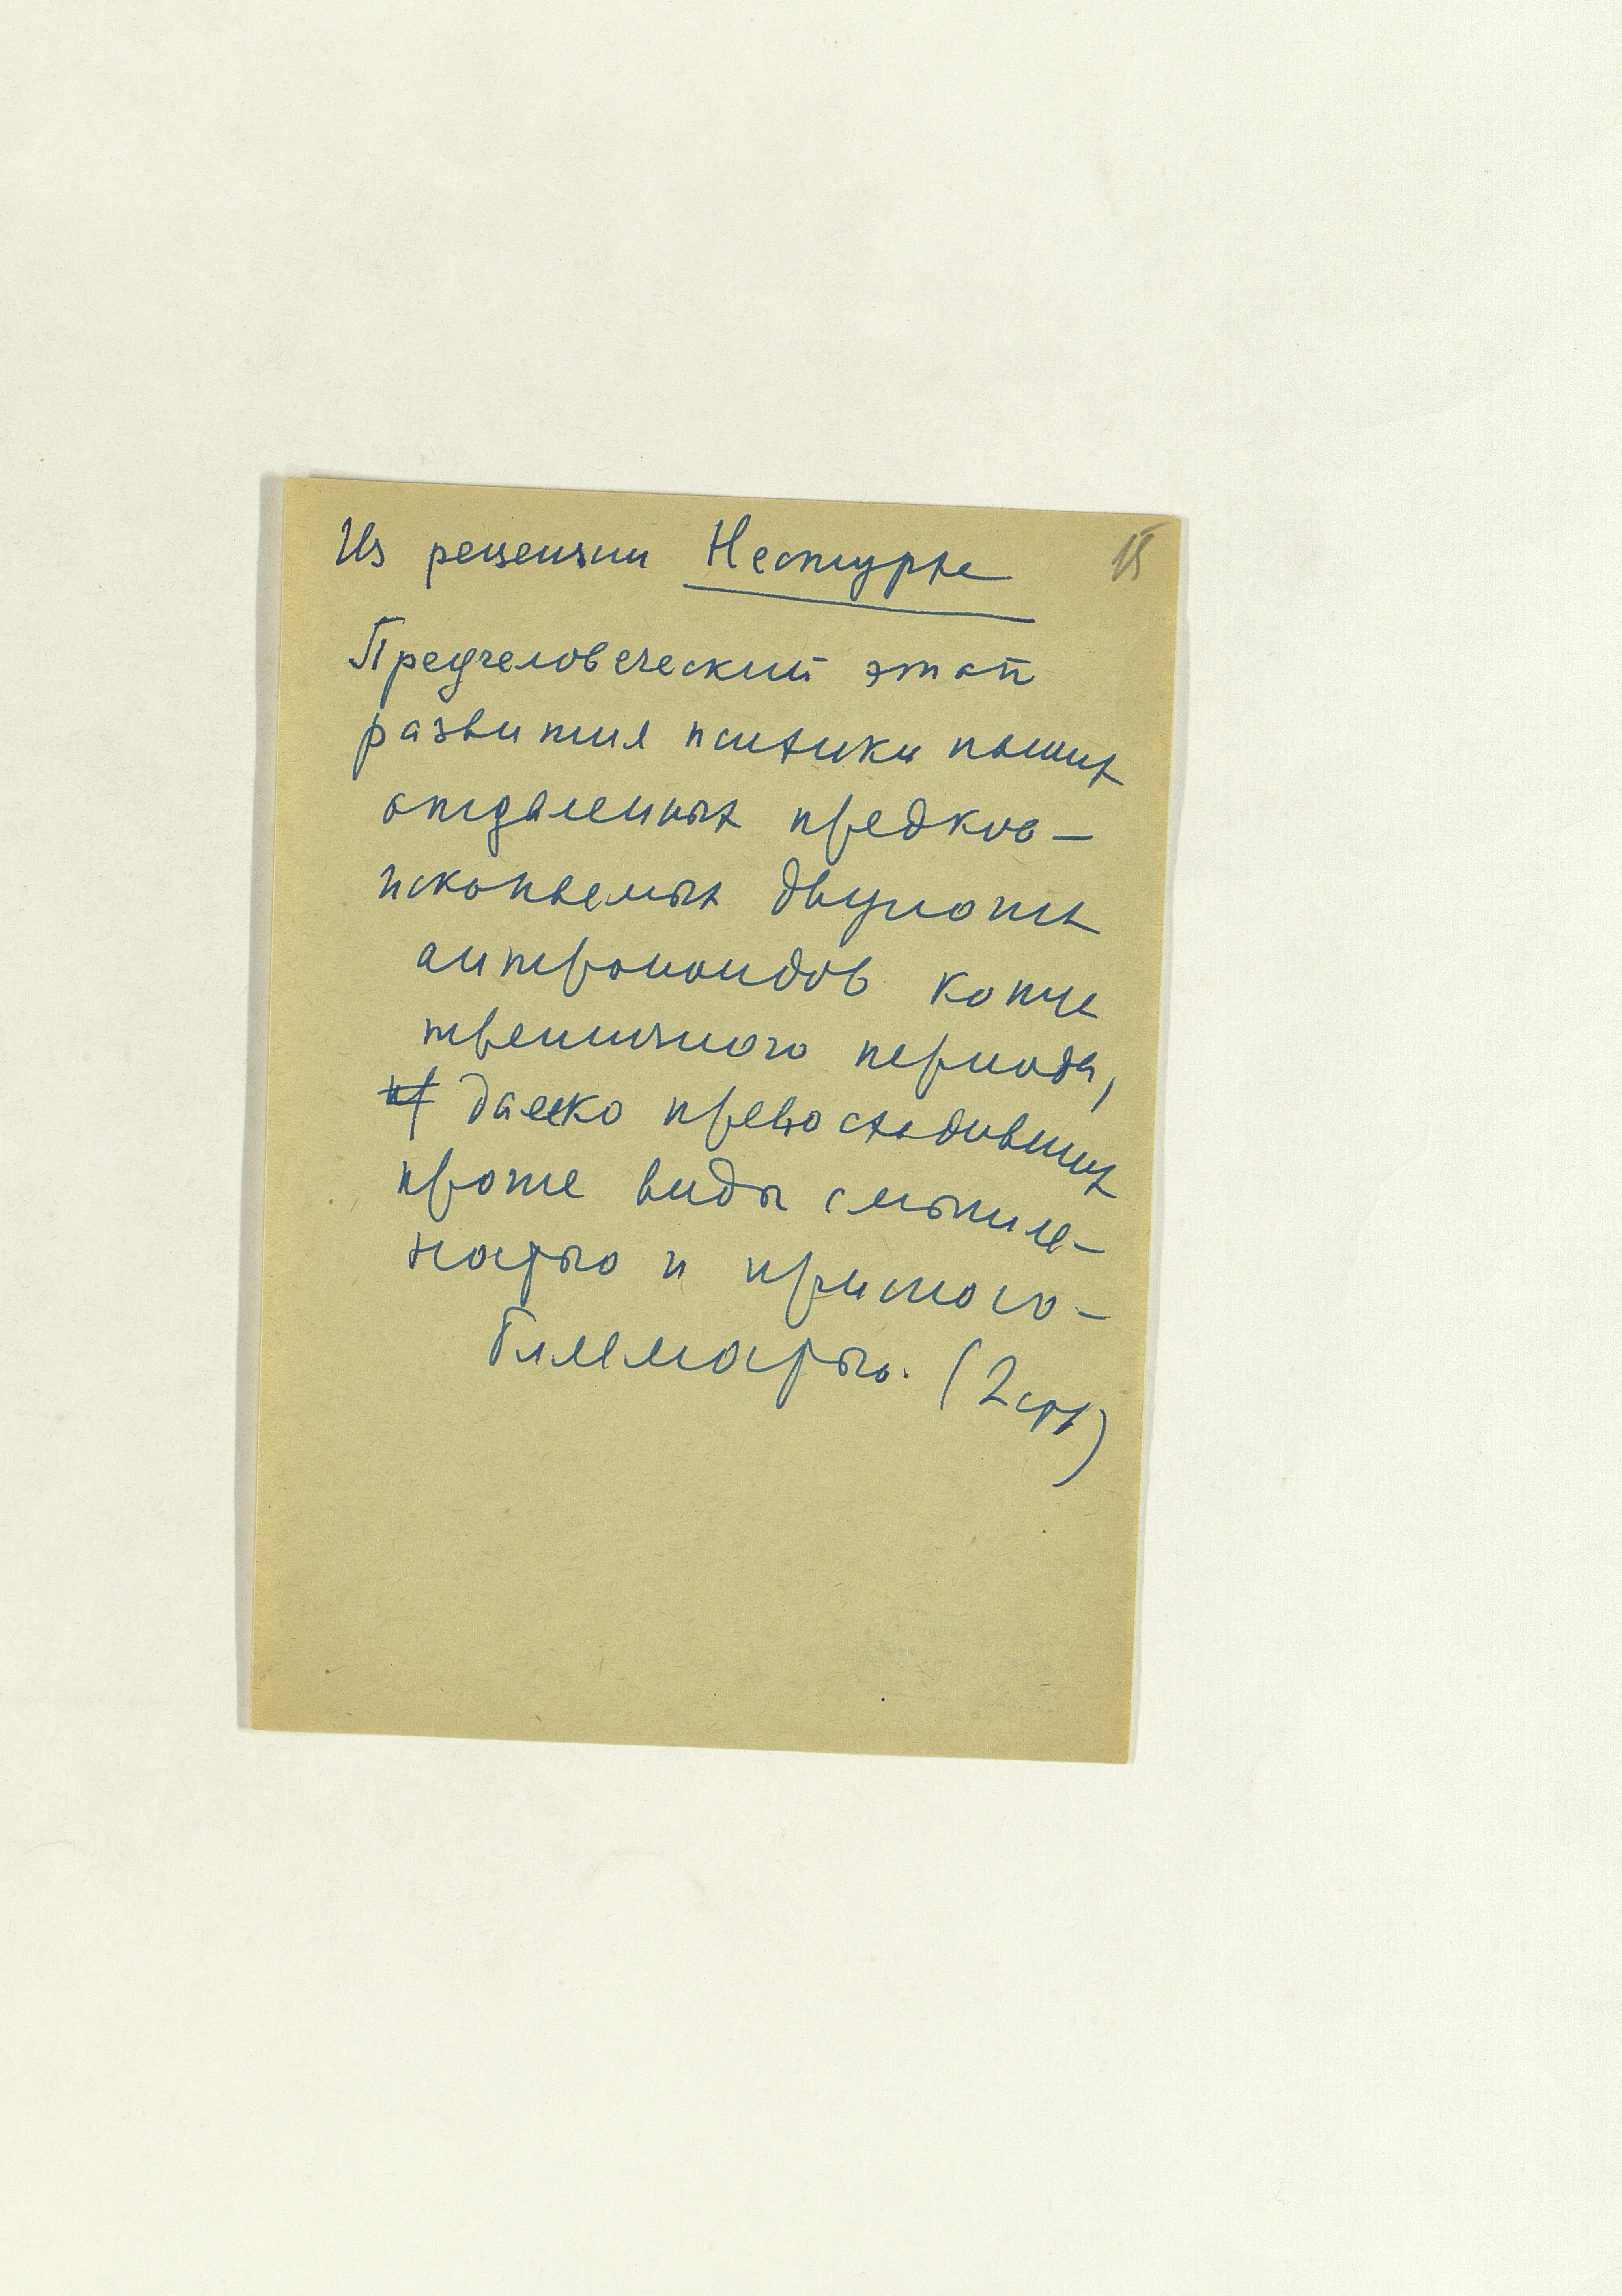 Из рецензии Нестурха 15
Предчеловеческий этап
развития психики наших
отдаленных предков —
ископаемых двуногих
антропоидов конца
третичного периода,
далеко превосходивших
прочие виды смышле-
ностью и приспосо-
бляемостью. (2 стр)